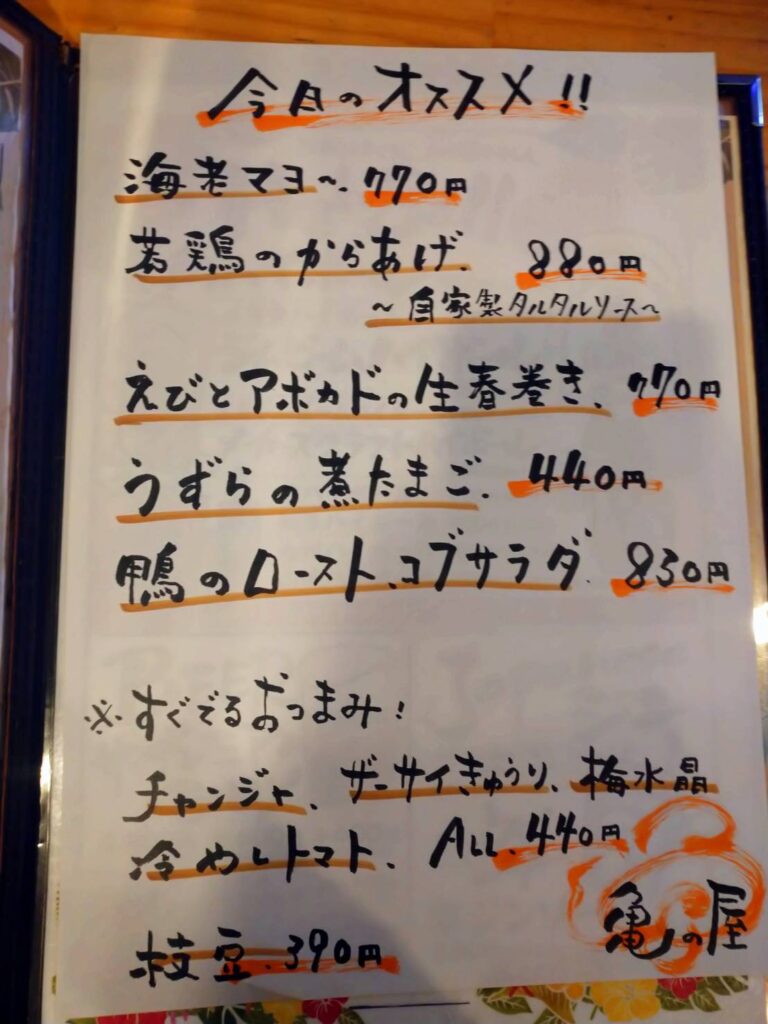 今月のオススメ!!
海老マヨ〜. 770円
若鶏のからあげ. 880円
〜自家製タルタルソース〜
えびとアボカドの生春巻き. 770円
うずらの煮たまご. 440円
鴨のロースト、コブサラダ. 830円
※すぐでるおつまみ!
チャンジャ、ザーサイきゅうり、梅水晶
冷やしトマト、ALL.440円
枝豆.390円
亀の屋